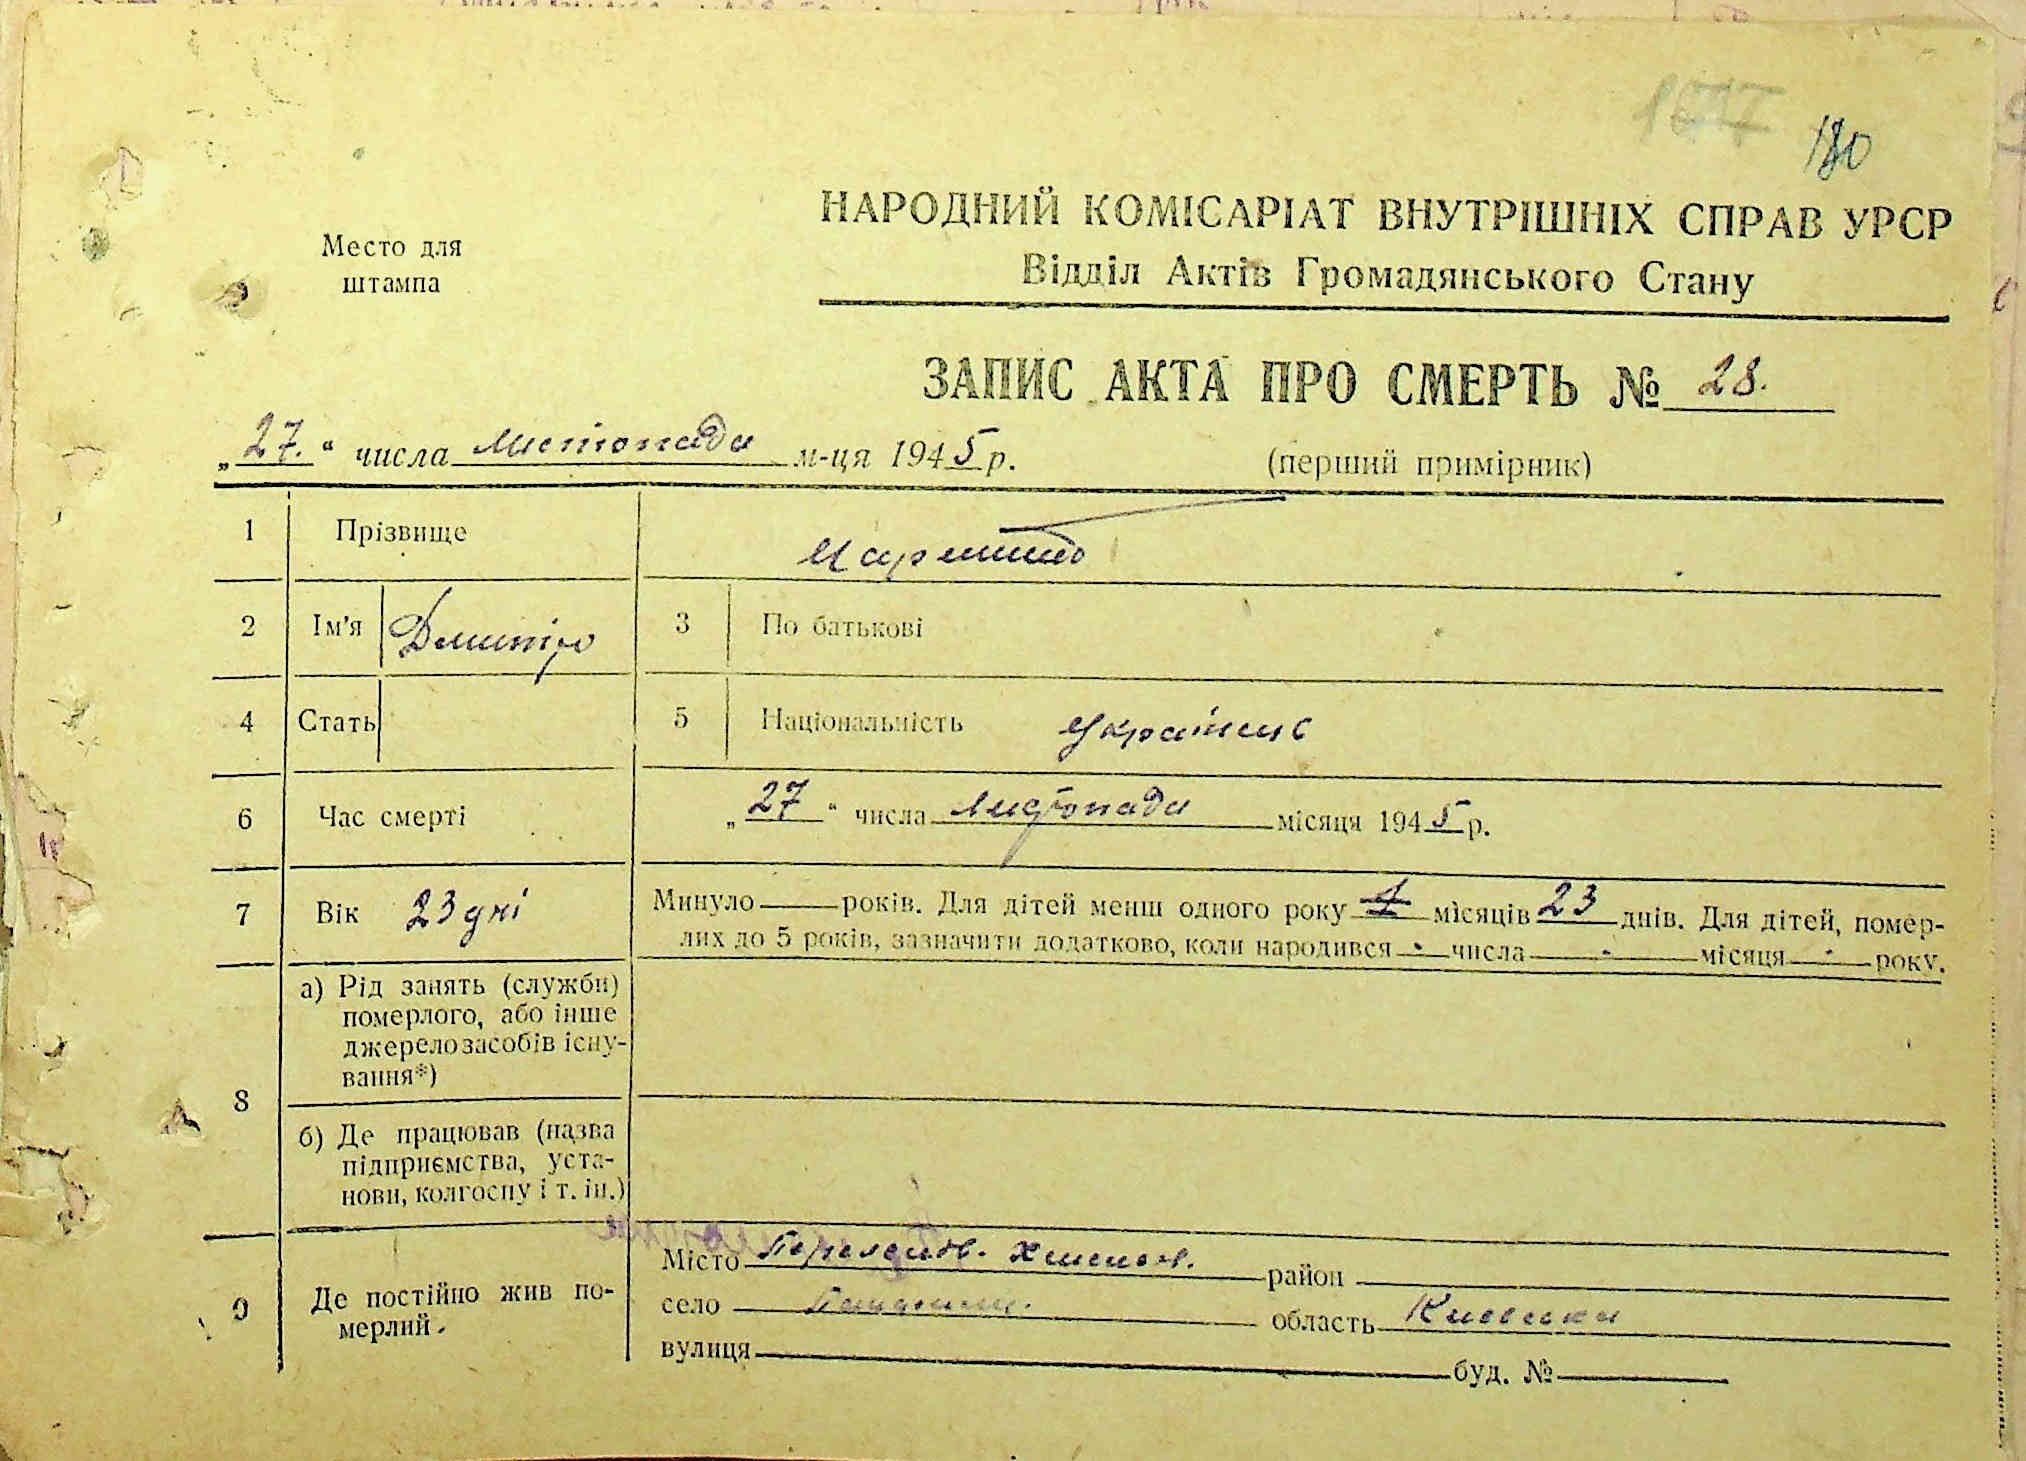 180
НАРОДНИЙ КОМІСАРІАТ ВНУТРІШНІХ СПРАВ УРСР
Место для
штампа
Відділ Актів Громадянського Стану
ЗАПИС АКТА ПРО СМЕРТЬ № 28.
„27.“ числа Листопада м-ця 1945 р.
(перший примірник)
1 Прізвище
2 Ім'я Дмитро 3 По батькові
4 Стать 5 Національність Українець
6 Час смерті „27“ числа Листопада місяця 1945 р.
7 Вік 23 дні Минуло — років. Для дітей менш одного року місяців 23 днів. Для дітей, помер-
лих до 5 років, зазначити додатково, коли народився - числа - місяця - року.
8 а) Рід занять (служби)
померлого, або інше
джерело засобів існу-
вання*)
б) Де працював (назва
підприємства, уста-
нови, колгоспу і т. ін.)
9 Де постійно жив по-
мерлий.
Місто район
село область Киевська
вулиця буд. №